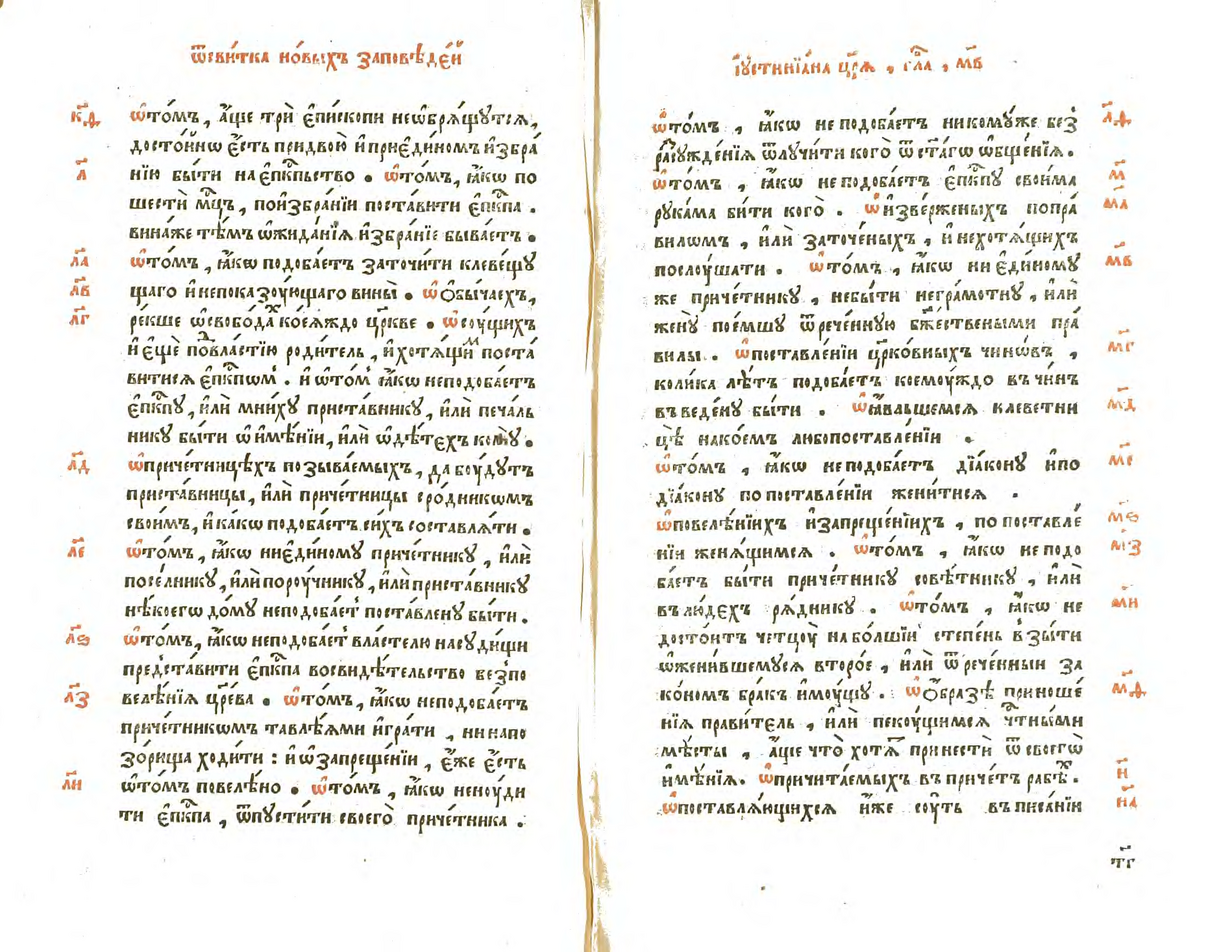 ѿсви́тка но́выхъ заповѣде́й
к҃ѳ ѡ҆то́мъ, а҆́ще трѝ є҆пи́скопи неѡбря́щꙋтся,
досто́йнѡ є҆́сть придвою̀ и҆приє҆ди́номъ и҆збра́
л҃ нїю бы́ти на є҆пкⷭ҇пьство . ѡ҆то́мъ, ꙗ҆́кѡ по
шестѝ мцⷭ҇ъ, пои҆збра́нїи поста́вити є҆пкⷭ҇па .
винаже тѣ́мъ ѡ҆жида́нїя и҆збра́нїе быва́етъ .
л҃а ѡ҆то́мъ, ꙗ҆́кѡ подоба́етъ заточи́ти клевещꙋ́
л҃в щаго и҆непоказꙋ́ющаго вины̀ . ѡ҆ ѻ҆бы́чаехъ,
л҃г ре́кше ѡ҆свобо́дахъ кое́яждо цр҃кве . ѡ҆сꙋ́щихъ
и҆ є҆щѐ по́ⷣвластїю роди́тель, и҆хотя́щимъ поста́
витися є҆пкⷭ҇пѡмъ . и ѡ҆то́мъ ꙗ҆́кѡ неподоба́етъ
є҆пкⷭ҇пꙋ, и҆лѝ мни́хꙋ приста́вникꙋ, и҆лѝ печа́ль
никꙋ бы́ти ѡ҆ и҆мѣ́нїи, и҆лѝ ѡ҆дѣ́техъ комꙋ̀ .
л҃д ѡ҆приче́тницѣхъ позыва́емыхъ, да бꙋ́дꙋтъ
приста́вницы, и҆лѝ приче́тницы сро́дникѡмъ
свои́мъ, и҆ ка́кѡ подоба́етъ си́хъ составля́ти .
л҃е ѡ҆то́мъ, ꙗ҆́кѡ ниє҆ди́номꙋ приче́тникꙋ, и҆лѝ
посе́лникꙋ, и҆лѝ порꙋ́чникꙋ, и҆лѝ приста́вникꙋ
нѣ́коегѡ до́мꙋ неподоба́етъ поста́вленꙋ бы́ти .
л҃ѕ ѡ҆то́мъ, ꙗ҆́кѡ неподоба́етъ власте́лю насꙋди́щи
предста́вити є҆пкⷭ҇па восвидѣ́тельство безпо
л҃з велѣ́нїя цр҃е́ва . ѡ҆то́мъ, ꙗ҆́кѡ неподоба́етъ
приче́тникѡмъ тавлѣ́ями и҆гра́ти , нинапо
зо́рища ходи́ти : и҆ ѡ҆ запреще́нїи , є҆́же є҆́сть
л҃и ѡ҆то́мъ повелѣ́но . ѡ҆то́мъ , ꙗ҆́кѡ непꙋди
ти є҆пкⷭ҇па , ѿпꙋсти́ти своего̀ приче́тника .
і҆ꙋстинїа́на цр҃я̀ , гла҃ , м҃в
л҃ѳ ѡ҆то́мъ , ꙗ҆́кѡ неподоба́етъ никомꙋ́же без̾
разсꙋжде́нїя ѿлꙋчи́ти кого̀ ѿ ст҃а́гѡ ѡ҆бще́нїя .
м҃ ѡ҆то́мъ , ꙗ҆́кѡ неподоба́етъ є҆пкⷭ҇пꙋ свои́ма
м҃а рꙋка́ма би́ти кого̀ . ѡ҆ и҆зве́рженыхъ попра́
вилѡмъ , и҆лѝ заточе́ныхъ , и҆ нехотя́щихъ
м҃в послꙋ́шати . ѡ҆то́мъ , ꙗ҆́кѡ ни є҆ди́номꙋ
же приче́тникꙋ , небы́ти негра́мотнꙋ , и҆лѝ
женꙋ̀ пое́мшꙋ ѿрече́ннꙋю бж҃ествеными пра́
м҃г вилы . ѡ҆поставле́нїи цр҃ко́вныхъ чинѡ́въ ,
коли́ка лѣ́тъ подоба́етъ коемꙋ́ждо въ чи́нъ
м҃д въведе́нꙋ бы́ти . ѡ҆ꙗ҆́вльшемся клеветни
цѣ̀ нако́емъ либопоставле́нїи .
м҃е ѡ҆то́мъ , ꙗ҆́кѡ неподоба́етъ дїа́конꙋ и҆по
дїа́конꙋ по поставле́нїи жени́тися .
м҃ѕ ѡ҆повелѣ́нїихъ и҆запреще́нїихъ , по поставле́
м҃з нїи женя́щимся . ѡ҆то́мъ , ꙗ҆́кѡ неподо
ба́етъ бы́ти приче́тникꙋ совѣ́тникꙋ , и҆лѝ
м҃и въ лю́дехъ ря́дникꙋ . ѡ҆то́мъ , ꙗ҆́кѡ не
досто́итъ четцꙋ̀ на бо́лшїи степе́нь взы́ти
ѡ҆жени́вшемꙋся второ́е , и҆лѝ ѿрече́нныи за
м҃ѳ ко́номъ бра́къ и҆мꙋ́щꙋ . ѡ҆ ѻ҆́бразѣ приноше́
нїя прави́тель , и҆лѝ пекꙋ́щимся чтⷭ҇ны́ми
мѣ́сты , а҆́ще что̀ хотя́тъ принестѝ ѿ своегѡ̀
н҃ и҆мѣ́нїя. ѡ҆причита́емыхъ въ приче́тъ рабѣ́хъ .
н҃а ѡ҆поставля́ющихся и҆́же сꙋ́ть въ писа́нїи
т҃г